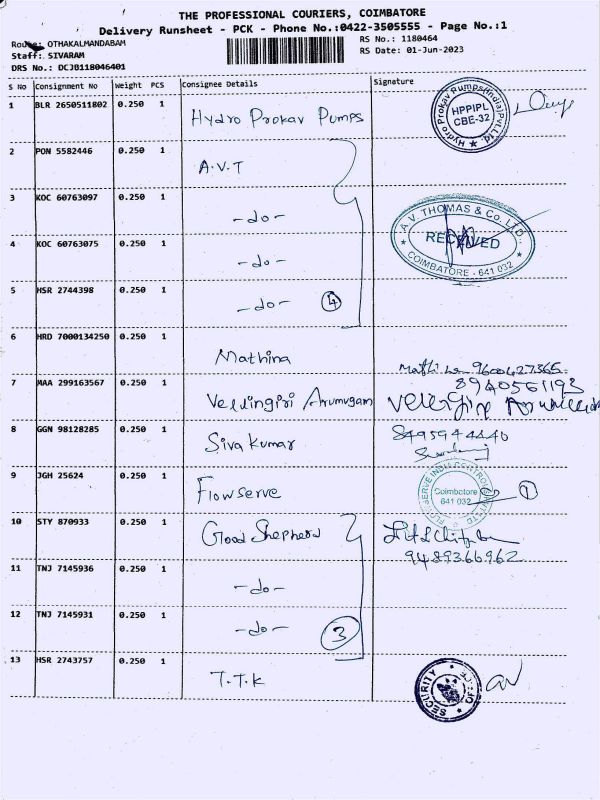 THE PROFESSIONAL COURIERS, COIMBATORE
Delivery Runsheet - PCK - Phone No.:0422-3505555 - Page No.:1
Route: OTHAKALMANDABAM
Staff: SIVARAM
DRS No.: DCJB118046401
RS No.: 1180464
RS Date: 01-Jun-2023
S No Consignment No Weight PCS Consignee Details Signature
1 BLR 2650511802 0.250 1 Hydro Prokav Pumps
Hydro Prokav Pumps(India)Pvt.Ltd
HPPIPL
CBE-32
2 PON 5582446 0.250 1 A.V.T
3 KOC 60763097 0.250 1 -do-
A.V. THOMAS & Co. LTD.
RECEIVED
COIMBATORE - 641 032
4 KOC 60763075 0.250 1 -do-
5 HSR 2744398 0.250 1 -do- 4
6 HRD 7000134250 0.250 1 Mathina 9600427365
7 MAA 299163567 0.250 1 Vellingiri Arumugam 8940561193
8 GGN 98128285 0.250 1 Siva Kumar 8495944440
9 JGH 25624 0.250 1 Flowserve
Coimbatore
641 032
1
10 STY 870933 0.250 1 Good Shepherd
9489366962
11 TNJ 7145936 0.250 1 -do-
12 TNJ 7145931 0.250 1 -do- 3
13 HSR 2743757 0.250 1 T.T.K
SECURITY